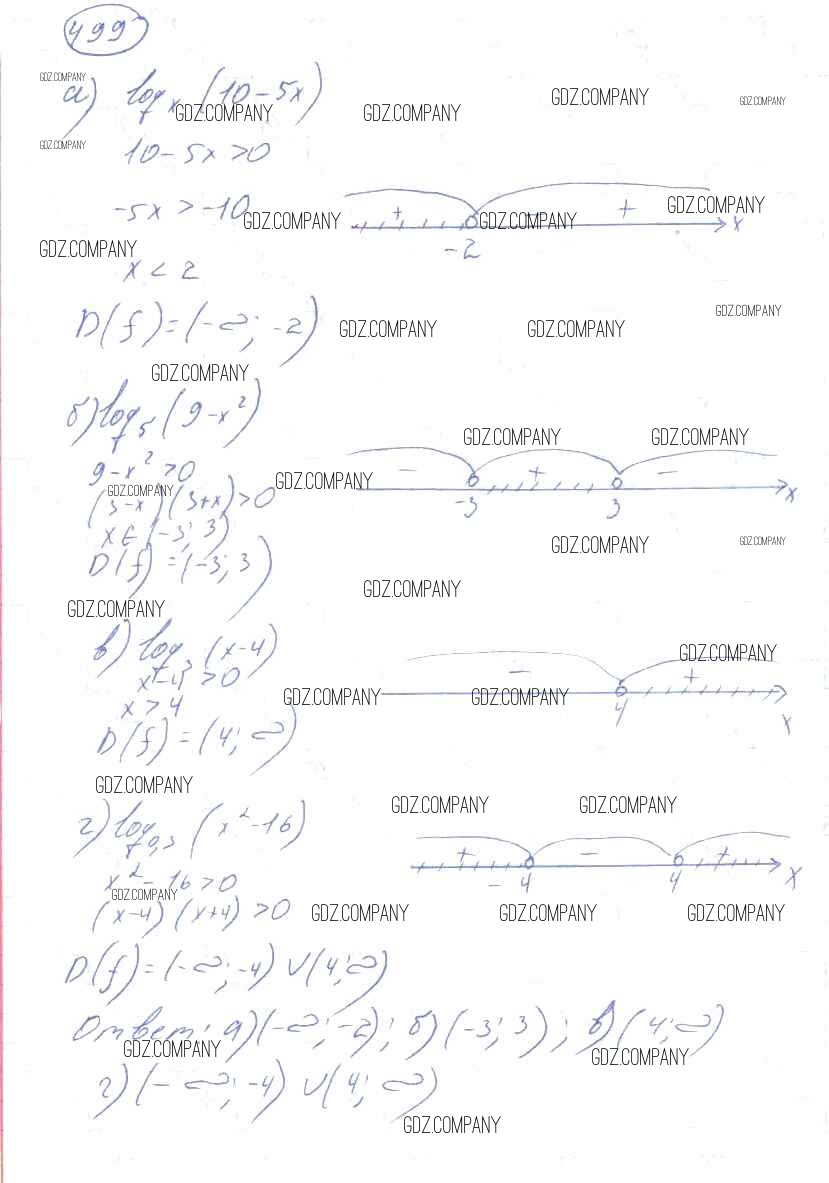 499
GDZ.COMPANY
а) log_π (10-5x)
GDZ.COMPANY GDZ.COMPANY GDZ.COMPANY GDZ.COMPANY
GDZ.COMPANY
10-5x>0
-5x>-10
GDZ.COMPANY + GDZ.COMPANY + GDZ.COMPANY x
-2
GDZ.COMPANY
x<2
D(f)=(-∞; -2)
GDZ.COMPANY GDZ.COMPANY GDZ.COMPANY
GDZ.COMPANY
б) log_5 (9-x²)
GDZ.COMPANY GDZ.COMPANY
9-x²>0
GDZ.COMPANY - + - x
-3 3
GDZ.COMPANY
(3-x)(3+x)>0
x∈(-3; 3)
GDZ.COMPANY GDZ.COMPANY
D(f)=(-3; 3)
GDZ.COMPANY
GDZ.COMPANY
в) log_3 (x-4)
GDZ.COMPANY
x-4>0
- + x
4
x>4
GDZ.COMPANY GDZ.COMPANY
D(f)=(4; ∞)
GDZ.COMPANY
GDZ.COMPANY GDZ.COMPANY
г) log_0,3 (x²-16)
+ - + x
-4 4
x²-16>0
GDZ.COMPANY
(x-4)(x+4)>0
GDZ.COMPANY GDZ.COMPANY GDZ.COMPANY
D(f)=(-∞; -4) ∪ (4; ∞)
Ответ: а) (-∞; -2); б) (-3; 3); в) (4; ∞)
GDZ.COMPANY GDZ.COMPANY
г) (-∞; -4) ∪ (4; ∞)
GDZ.COMPANY